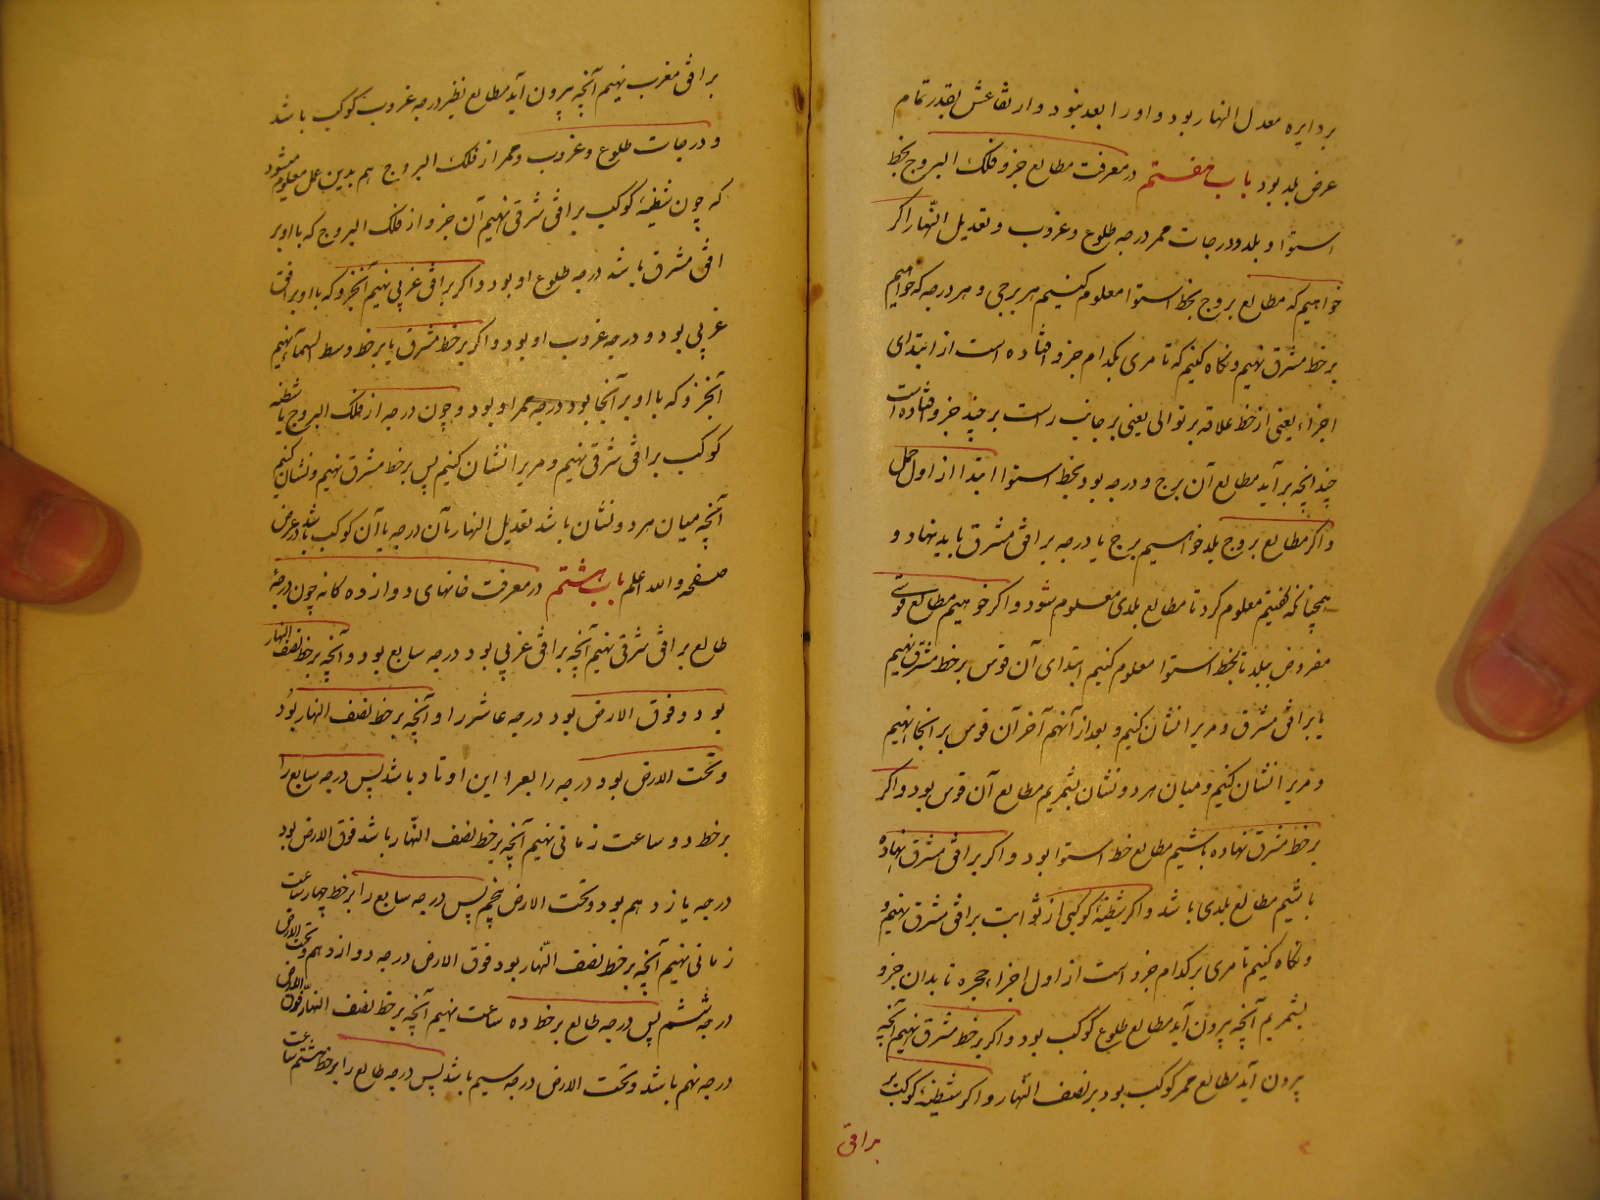 بر دایره معدل النهار بود و او را بعد نبود و ارتفاعش بقدر تمام
عرض بلد بود باب هفتم در معرفت مطالع جزو فلک البروج بخط
استوا و بلد و درجات ممر درجه طلوع و غروب و تعدیل النهار اکر
خواهیم که مطالع بروج بخط استوا معلوم کنیم هر برجی و هر درجه که خواهیم
بر خط مشرق نهیم و نکاه کنیم که تا مری بکدام جزو افتاده است از ابتدای
اجزاء یعنی از خط علاقه بر توالی یعنی بر جانب راست بر چند جزو افتاده است
چندانچه بر آید مطالع آن برج و درجه بود بخط استوا ابتدا از اول حمل
و اکر مطالع بروج بلد خواهیم برج یا درجه بر افق مشرق باید نهاد و
همچنانکه کفتیم معلوم کرد تا مطالع بلدی معلوم شود و اکر خواهیم مطالع قوسی
مفروض ببلد تا بخط استوا معلوم کنیم ابتدای آن قوس بر خط مشرق نهیم
یا بر افق مشرق و مریرا نشان کنیم و بعد از آنهم آخر آن قوس بر آنجا نهیم
و مریرا نشان کنیم و میان هر دو نشان بشمریم مطالع آن قوس بود و اکر
بر خط مشرق نهاده باشیم مطالع خط استوا بود و اکر بر افق مشرق نهاده
باشیم مطالع بلدی باشد و اکر شظیهٔ کوکبی از ثوابت بر افق مشرق نهیم و
و نکاه کنیم تا مری بر کدام جزو است از اول اجزاء حجره تا بدان جزو
بشمریم آنچه بیرون آید مطالع طلوع کوکب بود و اکر بر خط مشرق نهیم آنچه
بیرون آید مطالع ممر کوکب بود بر نصف النهار و اکر شظیهٔ کوکب بر
بر افق
بر افق مغرب نهیم آنچه بیرون آید مطالع نظیر درجه غروب کوکب باشد
و درجات طلوع و غروب و ممر از فلک البروج هم بدین عمل معلوم شود
که چون شظیهٔ کوکب بر افق شرقی نهیم آن جزو از فلک البروج که با او بر
افق مشرق باشد درجه طلوع او بود و اکر بر افق غربی نهیم آنجزو که با او بر افق
غربی بود و درجه غروب او بود و اکر بر خط مشرق یا بر خط وسط السما نهیم
آنجزو که با او بر آنجا بود درجه ممر او بود و چون درجه از فلک البروج یا شظیه
کوکب بر افق شرقی نهیم و مریرا نشان کنیم پس بر خط مشرق نهیم و نشان کنیم
آنچه میان هر دو نشان باشد تعدیل النهار آن درجه یا آن کوکب باشد در عرض
صفحه و الله اعلم باب هشتم در معرفت خانهای دوازده کانه چون درجهٔ
طالع بر افق شرقی نهیم آنچه بر افق غربی بود درجه سابع بود و آنچه بر خط نصف النهار
بود و فوق الارض بود درجه عاشر را و آنچه بر خط نصف النهار بُود
و تحت الارض بود درجه رابع را این اوتاد باشد پس درجه سابع را
بر خط دو ساعت زمانی نهیم آنچه بر خط نصف النهار باشد فوق الارض بود
درجه یازدهم بود و تحت الارض پنجم پس درجه سابع را بر خط چهار ساعت
زمانی نهیم آنچه بر خط نصف النهار بود فوق الارض درجه دوازدهم و تحت الارض
درجه ششم پس درجه طالع بر خط ده ساعت نهیم آنچه بر خط نصف النهار فوق الارض
درجه نهم باشد و تحت الارض درجه سیم باشد پس درجه طالع را بر خط هشتم ساعت